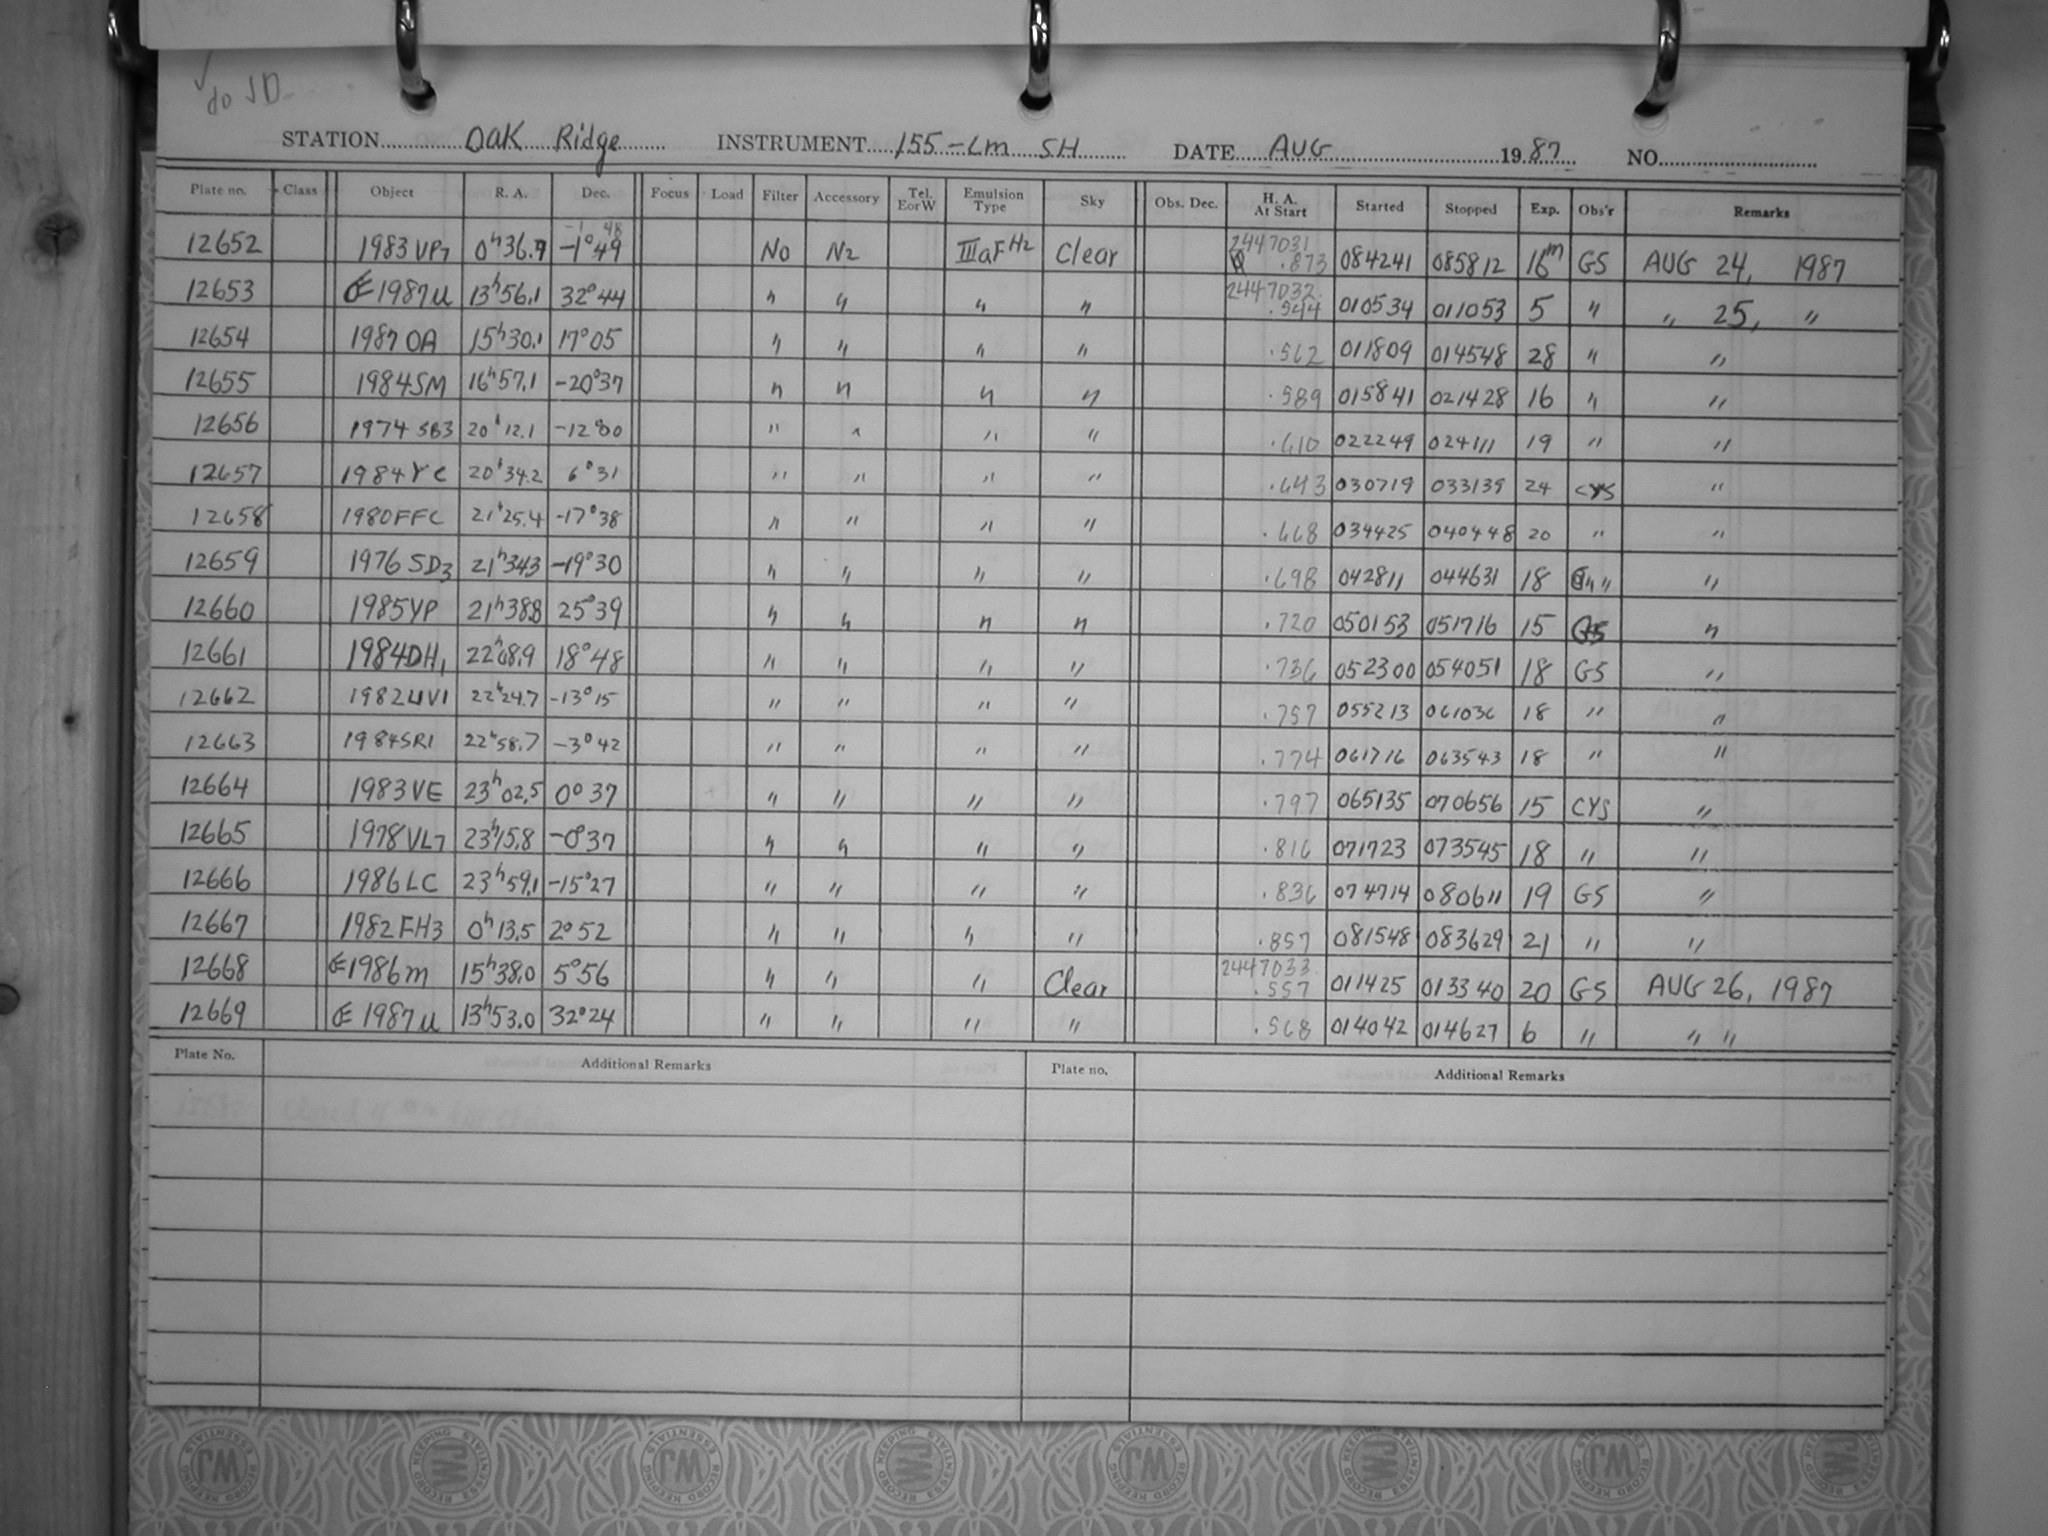 do JD
STATION Oak Ridge INSTRUMENT 155-cm SH DATE AUG 1987 NO
Plate no. Class Object R. A. Dec. Focus Load Filter Accessory Tel. E or W Emulsion Type Sky Obs. Dec. H. A. At Start Started Stopped Exp. Obs'r Remarks
-1 48 2447031
12652 1983 VP7 0h36.9 -1°49 No N2 IIIaF H2 Clear .873 084241 085812 16m GS AUG 24, 1987
2447032.
12653 1987u 13h56.1 32°44 " " " " .544 010534 011053 5 " " 25, "
12654 1987 OA 15h30.1 17°05 " " " " .562 011809 014548 28 " "
12655 1984SM 16h57.1 -20°37 " " " " .589 015841 021428 16 " "
12656 1974 SB3 20h12.1 " " " " .610 022249 024111 19 " "
12657 1984YC 20h34.2 6°31 " " " " .643 030719 033139 24 CYS "
12658 1980FFC 21h25.4 -17°38 " " " " .668 034425 040448 20 " "
12659 1976 SD3 21h343 -19°30 " " " " .698 042811 044631 18 " "
12660 1985YP 21h388 25°39 " " " " .720 050153 051716 15 GS "
12661 1984DH1 22h08.9 18°48 " " " " .736 052300 054051 18 GS "
12662 1982UV1 22h24.7 -13°15 " " " " .757 055213 061036 18 " "
12663 1984SR1 22h58.7 -3°42 " " " " .774 061716 063543 18 " "
12664 1983VE 23h02.5 0°37 " " " " .797 065135 070656 15 CYS "
12665 1978VL7 23h15.8 -0°37 " " " " .816 071723 073545 18 " "
12666 1986LC 23h59.1 -15°27 " " " " .836 074714 080611 19 GS "
12667 1982FH3 0h13.5 2°52 " " " " .857 081548 083629 21 " "
2447033.
12668 1986m 15h38.0 5°56 " " " Clear .557 011425 013340 20 GS AUG 26, 1987
12669 1987u 13h53.0 32°24 " " " " .568 014042 014627 6 " " "
Plate No. Additional Remarks Plate no. Additional Remarks
JW RECORD KEEPING ESSENTIALS